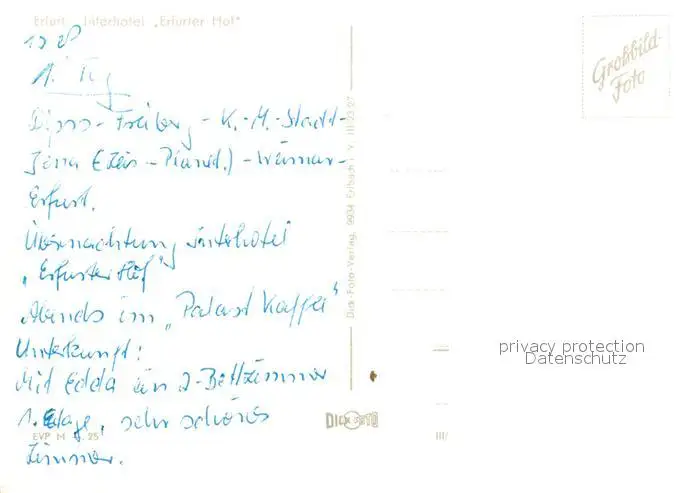 Erfurt Interhotel „Erfurter Hof"
1. Tag
Dipps - Freiberg - K.-M.-Stadt -
Jena (Zeis-Planet.) - Weimar -
Erfurt.
Übernachtung Interhotel
„Erfurter Hof"
Abends im „Palast Kaffee"
Unterkunft:
Mit Edda im 2-Bettzimmer
1. Etage, sehr schönes
Zimmer.
EVP M 0.25
Dick-Foto-Verlag, 9934 Erlbach i. V. III 23 27
DICK FOTO
III/
Großbild-
Foto
privacy protection
Datenschutz